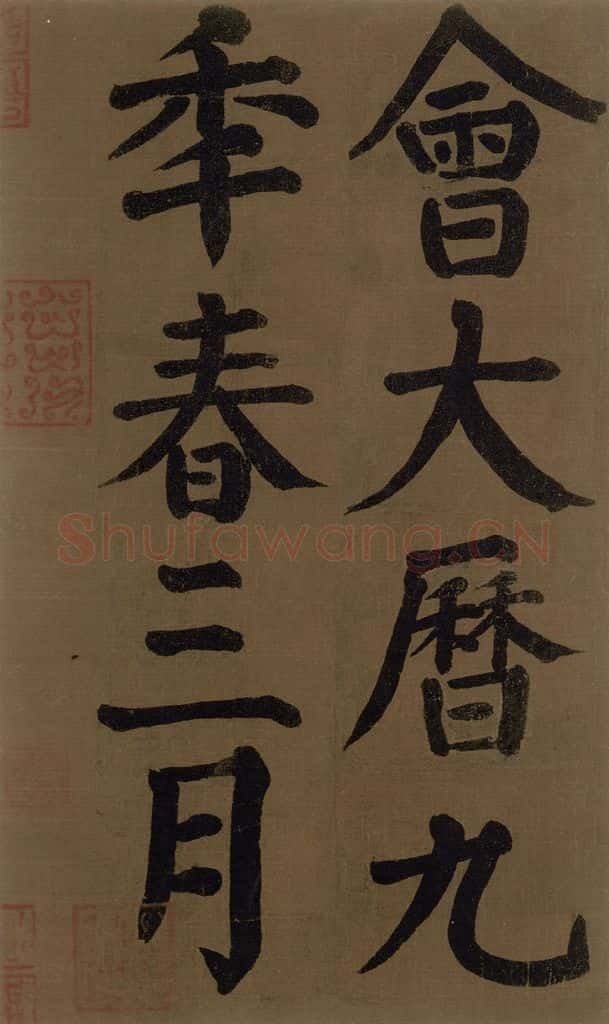 會大曆九
年春三月
Shufawang.CN